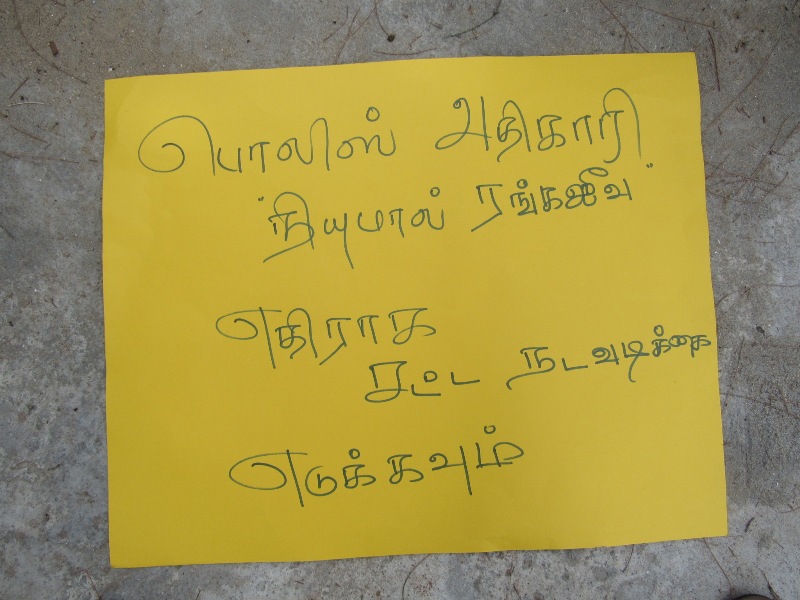 பொலிஸ் அதிகாரி
"நியுமால் ரங்கஜீவ"
எதிராக
சட்ட நடவடிக்கை
எடுக்கவும்